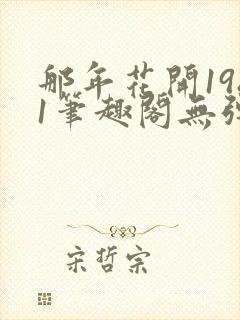 那年花開19
1筆趣閣無
宋哲宗